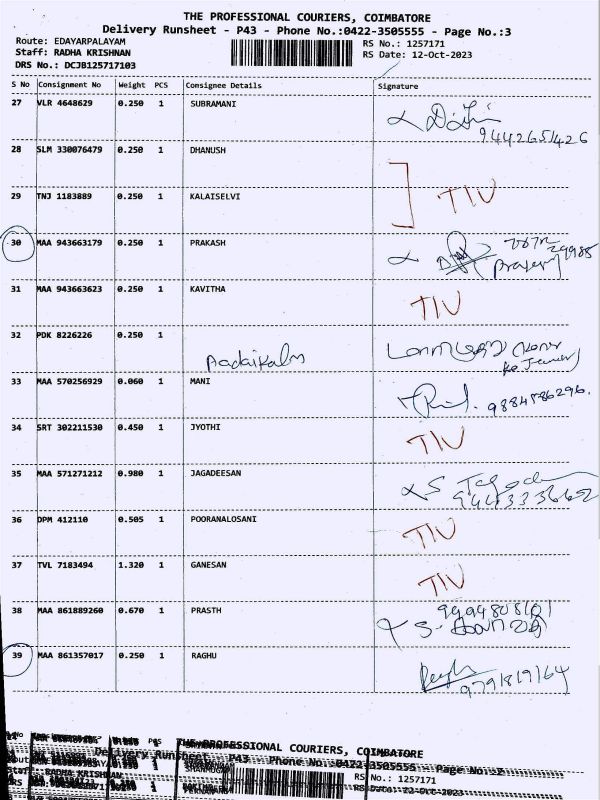 THE PROFESSIONAL COURIERS, COIMBATORE
Delivery Runsheet - P43 - Phone No.:0422-3505555 - Page No.:3
Route: EDAYARPALAYAM
RS No.: 1257171
Staff: RADHA KRISHNAN
RS Date: 12-Oct-2023
DRS No.: DCJB125717103
S No Consignment No Weight PCS Consignee Details Signature
27 VLR 4648629 0.250 1 SUBRAMANI
9442651426
28 SLM 330076479 0.250 1 DHANUSH
29 TNJ 1183889 0.250 1 KALAISELVI TIV
30 MAA 943663179 0.250 1 PRAKASH
31 MAA 943663623 0.250 1 KAVITHA TIV
32 PDK 8226226 0.250 1
33 MAA 570256929 0.060 1 MANI 9884586296.
34 SRT 302211530 0.450 1 JYOTHI TIV
35 MAA 571271212 0.980 1 JAGADEESAN
36 DPM 412110 0.505 1 POORANALOSANI TIV
37 TVL 7183494 1.320 1 GANESAN TIV
38 MAA 861889260 0.670 1 PRASTH
39 MAA 861357017 0.250 1 RAGHU 9791819164
THE PROFESSIONAL COURIERS, COIMBATORE
Delivery Runsheet - P43 - Phone No.:0422-3505555 - Page No.:2
RS No.: 1257171
Staff: RADHA KRISHNAN
RS Date: 12-Oct-2023